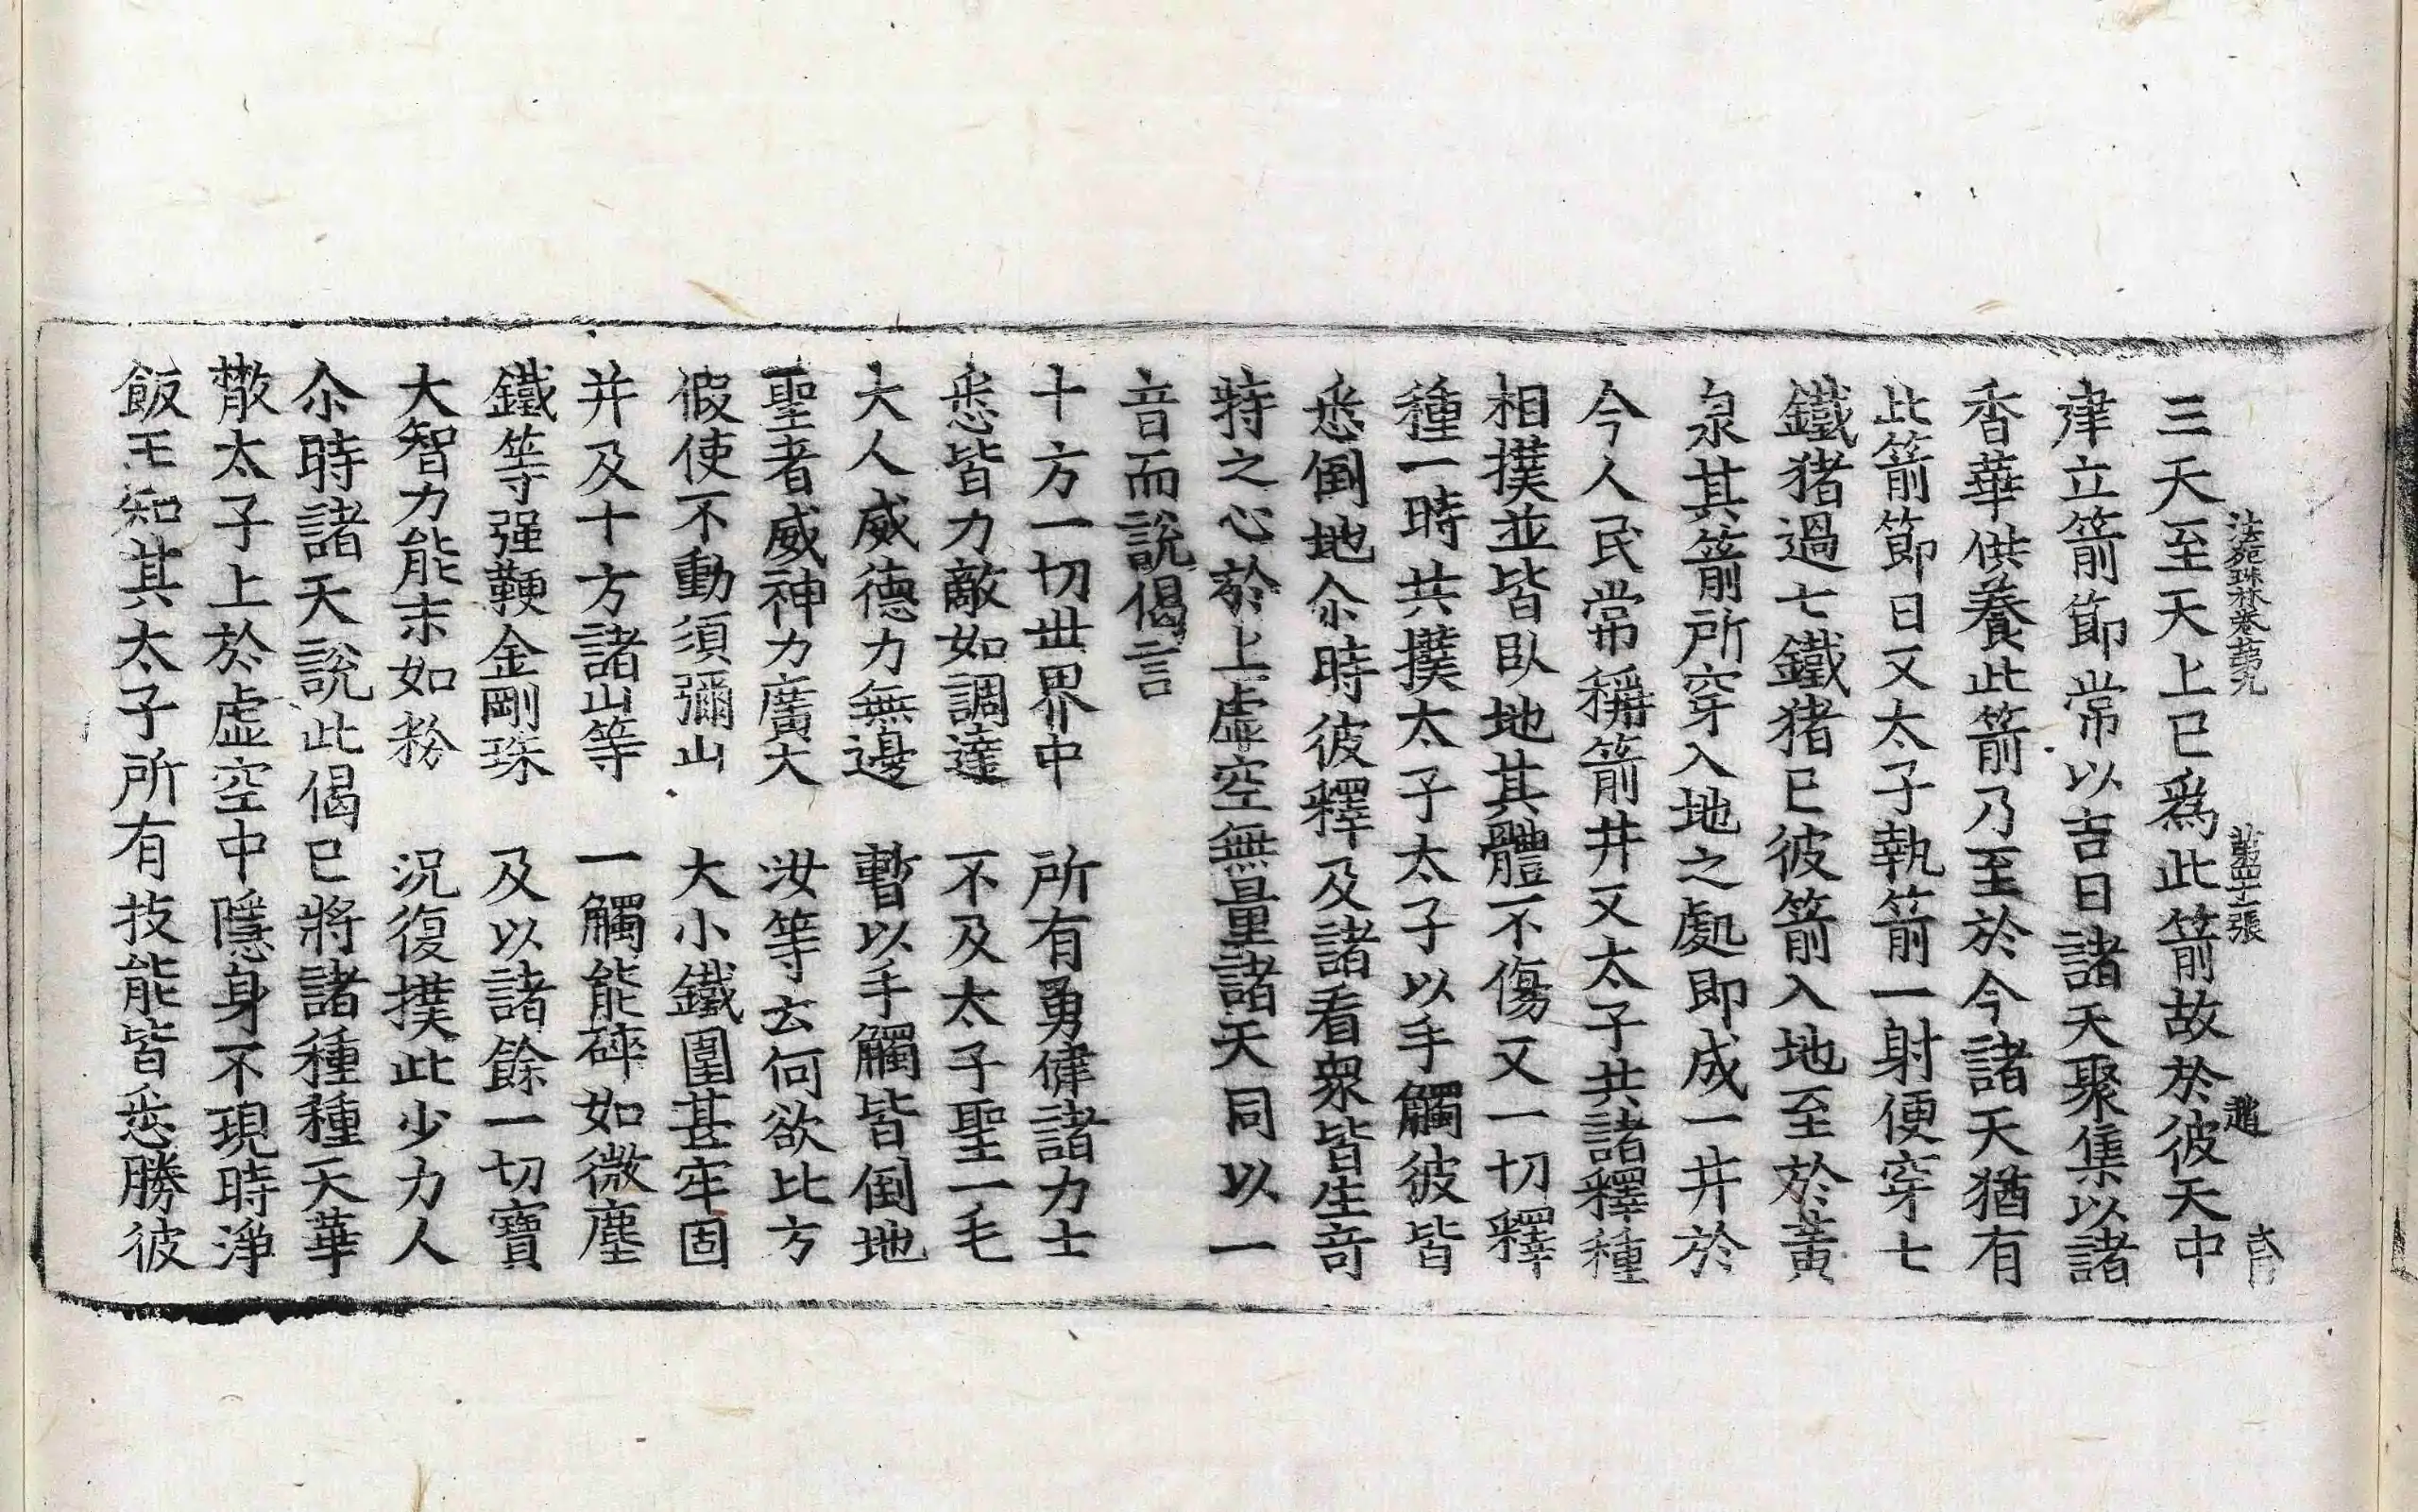 三天至天上已爲此箭故於彼天中
法苑珠林卷第九 第四十二張 趙
建立箭節常以吉日諸天聚集以諸
香華供養此箭乃至於今諸天猶有
此箭節日又太子執箭一射便穿七
鐵猪過七鐵猪已彼箭入地至於黃
泉其箭所穿入地之處即成一井於
今人民常稱箭井又太子共諸釋種
相撲並皆臥地其體不傷又一切釋
種一時共撲太子太子以手觸彼皆
悉倒地尒時彼釋及諸看衆皆生竒
特之心於上虛空無量諸天同以一
音而說偈言
十方一切世界中 所有勇健諸力士
悉皆力敵如調達 不及太子聖一毛
大人威德力無邊 暫以手觸皆倒地
聖者威神力廣大 汝等云何欲比方
假使不動須彌山 大小鐵圍甚牢固
并及十方諸山等 一觸能碎如微塵
鐵等强鞕金剛珠 及以諸餘一切寶
大智力能末如粉 況復撲此少力人
尒時諸天說此偈已將諸種種天華
散太子上於虛空中隱身不現時淨
飯王知其太子所有技能皆悉勝彼